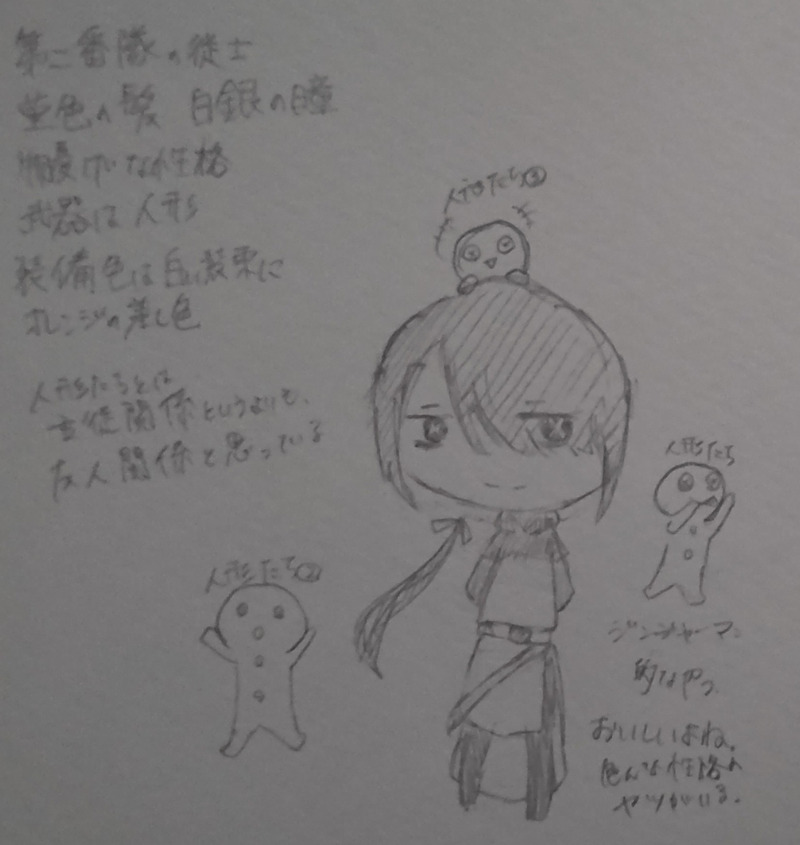 第二番隊の従士
菫色の髪 白銀の瞳
な性格
武器は人形
装備色は白装束に
オレンジの差し色
人形たちとは
主従関係というよりも、
友人関係と思っている
人形たち③
人形たち
人形たち②
ジンジャーマン
的なやつ
おいしいよね。
色んな性格の
ヤツがいる。